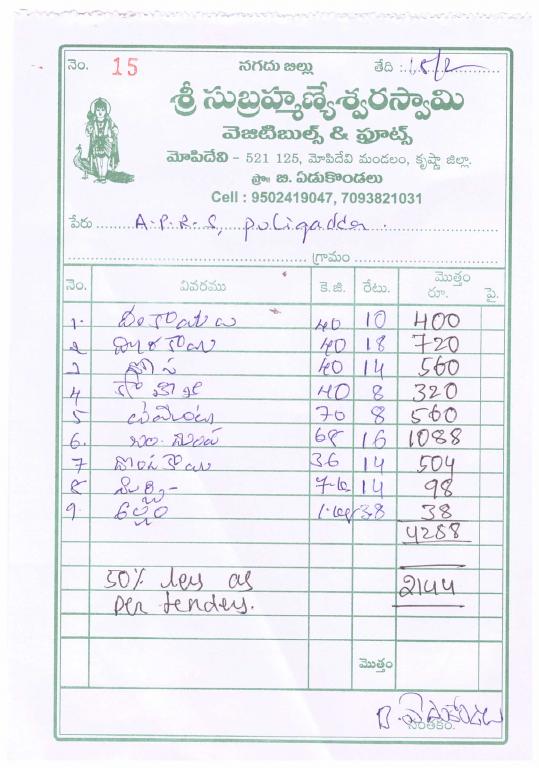 నెం. 15 నగదు బిల్లు తేది : 15/2
శ్రీ సుబ్రహ్మణ్యేశ్వరస్వామి
వెజిటిబుల్స్ & ఫ్రూట్స్
మోపిదేవి - 521 125, మోపిదేవి మండలం, కృష్ణా జిల్లా.
ప్రొ॥ బి. ఏడుకొండలు
Cell : 9502419047, 7093821031
పేరు A.P.R.S, puligadda.
గ్రామం
నెం. వివరము కె.జి. రేటు. మొత్తం రూ. పై.
1. 40 10 400
2 40 18 720
3 దోస 40 14 560
4 40 8 320
5 70 8 560
6. 68 16 1088
7 దొండకాయ 36 14 504
8 7-kg 14 98
9. అల్లం 1-kg 38 38
4288
50% less as 2144
per tenders.
మొత్తం
B. ఏడుకొండలు
సంతకం.